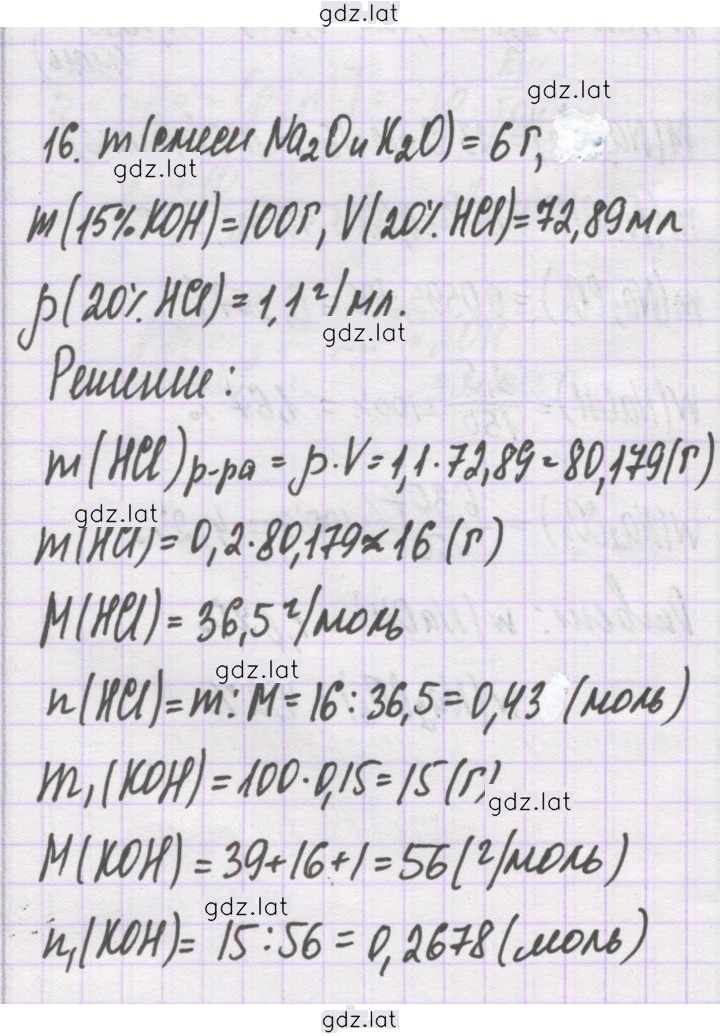 gdz.lat
gdz.lat
16. m(смеси Na₂O и K₂O) = 6 г,
gdz.lat
m(15% KOH) = 100 г, V(20% HCl) = 72,89 мл
ρ(20% HCl) = 1,1 г/мл.
gdz.lat
Решение:
m(HCl)р-ра = ρ · V = 1,1 · 72,89 = 80,179 (г)
gdz.lat
m(HCl) = 0,2 · 80,179 ≈ 16 (г)
M(HCl) = 36,5 г/моль
gdz.lat
n(HCl) = m : M = 16 : 36,5 = 0,43 (моль)
m₁(KOH) = 100 · 0,15 = 15 (г)
gdz.lat
M(KOH) = 39 + 16 + 1 = 56 (г/моль)
gdz.lat
n₁(KOH) = 15 : 56 = 0,2678 (моль)
gdz.lat